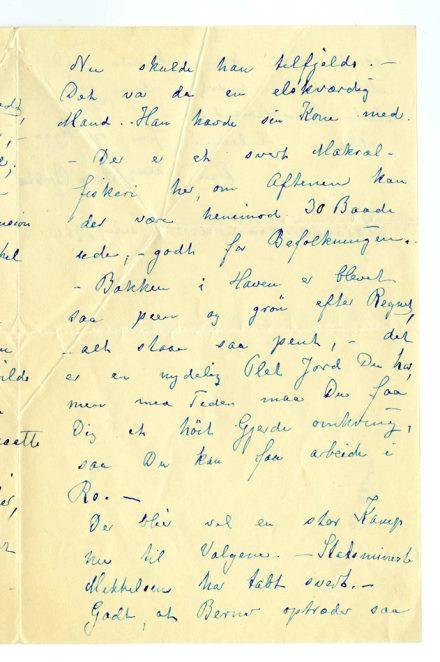 Nu skulde han tilfjelds. –
Det var da en elskværdig
Mand. – Han havde sin Kone med.
– Der er et svert Makrel-
fiskeri her, om Aftenen kan
der være henimod 30 Baade
ude, – godt for Befolkningen.
– Bakken i Haven er blevet
saa pen og grøn efter Regnet,
– alt staar saa pent, – det
er en nydelig Plet Jord Du har,
men med Tiden maa Du faa
Dig et höit Gjerde omkring,
saa Du kan faa arbeide i
Ro. –
Det blir vel en stor Kamp
nu til Valgene. – Statsminister
Mikkelsen har tabt svert. –
Godt, at Berner optræder saa